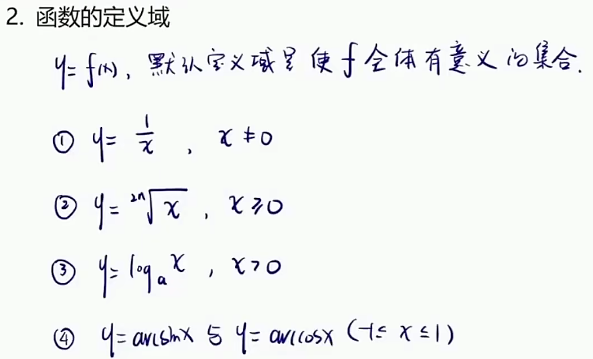 2. 函数的定义域
y=f(x), 默认定义域是使f全体有意义的集合.
① y= 1/x , x≠0
② y= ²ⁿ√x , x≥0
③ y=logₐx , x>0
④ y=arcsinx 与 y=arccosx (-1≤x≤1)